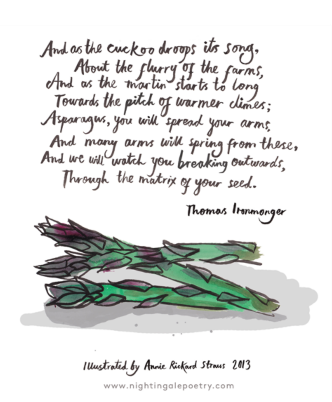 And as the cuckoo droops its song,
About the flurry of the farms,
And as the martin starts to long
Towards the pitch of warmer climes;
Asparagus, you will spread your arms,
And many arms will spring from these,
And we will watch you breaking outwards,
Through the matrix of your seed.
Thomas Ironmonger
Illustrated by Annie Rickard Straus 2013
www.nightingalepoetry.com